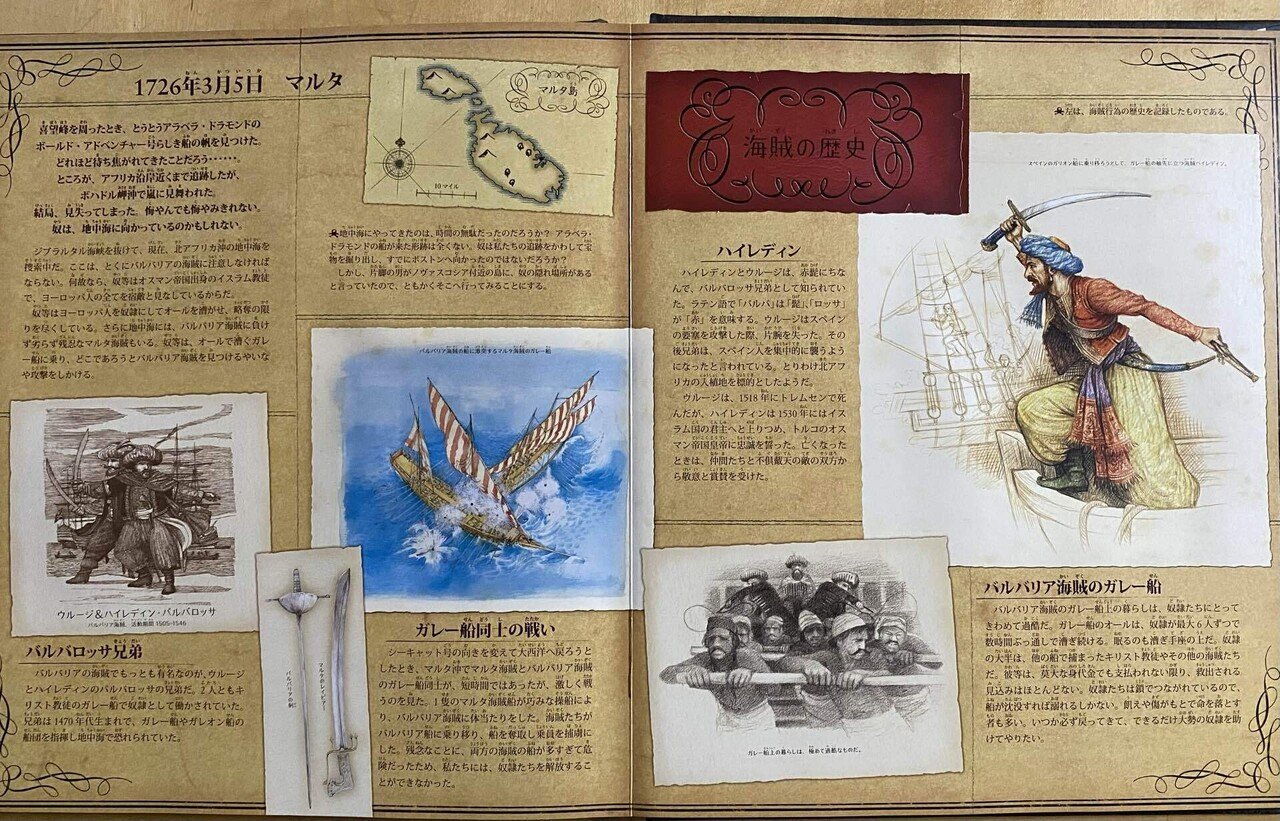 1726年3月5日　マルタ
喜望峰を周ったとき、とうとうアラベラ・ドラモンドの
ボールド・アドベンチャー号らしき船の帆を見つけた。
どれほど待ち焦がれてきたことだろう……。
ところが、アフリカ沿岸近くまで追跡したが、
ボハドル岬沖で嵐に見舞われた。
結局、見失ってしまった。悔やんでも悔やみきれない。
奴は、地中海に向かっているのかもしれない。
ジブラルタル海峡を抜けて、現在、北アフリカ沖の地中海を
捜索中だ。ここは、とくにバルバリアの海賊に注意しなければ
ならない。何故なら、奴等はオスマン帝国出身のイスラム教徒
で、ヨーロッパ人の全てを宿敵と見なしているからだ。
奴等はヨーロッパ人を奴隷にしてオールを漕がせ、略奪の限
りを尽くしている。さらに地中海には、バルバリア海賊に負け
ず劣らず残忍なマルタ海賊もいる。奴等は、オールで漕ぐガレ
ー船に乗り、どこであろうとバルバリア海賊を見つけるやいな
や攻撃をしかける。
ウルージ&ハイレディン・バルバロッサ
バルバリア海賊、活動期間 1505-1546
バルバロッサ兄弟
バルバリアの海賊でもっとも有名なのが、ウルージ
とハイレディンのバルバロッサの兄弟だ。2人ともキ
リスト教徒のガレー船で奴隷として働かされていた。
兄弟は1470年代生まれで、ガレー船やガレオン船の
船団を指揮し地中海で恐れられていた。
マルタ島
10マイル
地中海にやってきたのは、時間の無駄だったのだろうか？アラベラ・
ドラモンドの船が来た形跡は全くない。奴は私たちの追跡をかわして宝
物を掘り出し、すでにボストンへ向かったのではないだろうか？
しかし、片脚の男がノヴァスコシア付近の島に、奴の隠れ場所がある
と言っていたので、ともかくそこへ行ってみることにする。
バルバリア海賊の船に激突するマルタ海賊のガレー船
バルバリアの剣
マルタのレイピアー
ガレー船同士の戦い
シーキャット号の向きを変えて大西洋へ戻ろうと
したとき、マルタ沖でマルタ海賊とバルバリア海賊
のガレー船同士が、短時間ではあったが、激しく戦
うのを見た。1隻のマルタ海賊船が巧みな操船によ
り、バルバリア海賊に体当たりをした。海賊たちが
バルバリア船に乗り移り、船を奪取し乗員を捕虜に
した。残念なことに、両方の海賊の船が多すぎて危
険だったため、私たちには、奴隷たちを解放するこ
とができなかった。
海賊の歴史
左は、海賊行為の歴史を記録したものである。
スペインのガリオン船に乗り移ろうとして、ガレー船の舳先に立つ海賊ハイレディン。
ハイレディン
ハイレディンとウルージは、赤髭にちな
んで、バルバロッサ兄弟として知られてい
た。ラテン語で「バルバ」は「髭」、「ロッサ」
が「赤」を意味する。ウルージはスペイン
の要塞を攻撃した際、片腕を失った。その
後兄弟は、スペイン人を集中的に襲うよう
になったと言われている。とりわけ北アフ
リカの入植地を標的としたようだ。
ウルージは、1518年にトレムセンで死
んだが、ハイレディンは1530年にはイス
ラム国の君主へと上りつめ、トルコのオス
マン帝国皇帝に忠誠を誓った。亡くなった
ときは、仲間たちと不倶戴天の敵の双方か
ら敬意と賞賛を受けた。
ガレー船上の暮らしは、極めて過酷なものだ。
バルバリア海賊のガレー船
バルバリア海賊のガレー船上の暮らしは、奴隷たちにとって
きわめて過酷だ。ガレー船のオールは、奴隷が最大6人ずつで
数時間ぶっ通しで漕ぎ続ける。眠るのも漕ぎ手座の上だ。奴隷
の大半は、他の船で捕まったキリスト教徒やその他の海賊たち
だ。彼等は、莫大な身代金でも支払われない限り、救出される
見込みはほとんどない。奴隷たちは鎖でつながれているので、
船が沈没すれば溺れるしかない。飢えや傷がもとで命を落とす
者も多い。いつか必ず戻ってきて、できるだけ大勢の奴隷を助
けてやりたい。